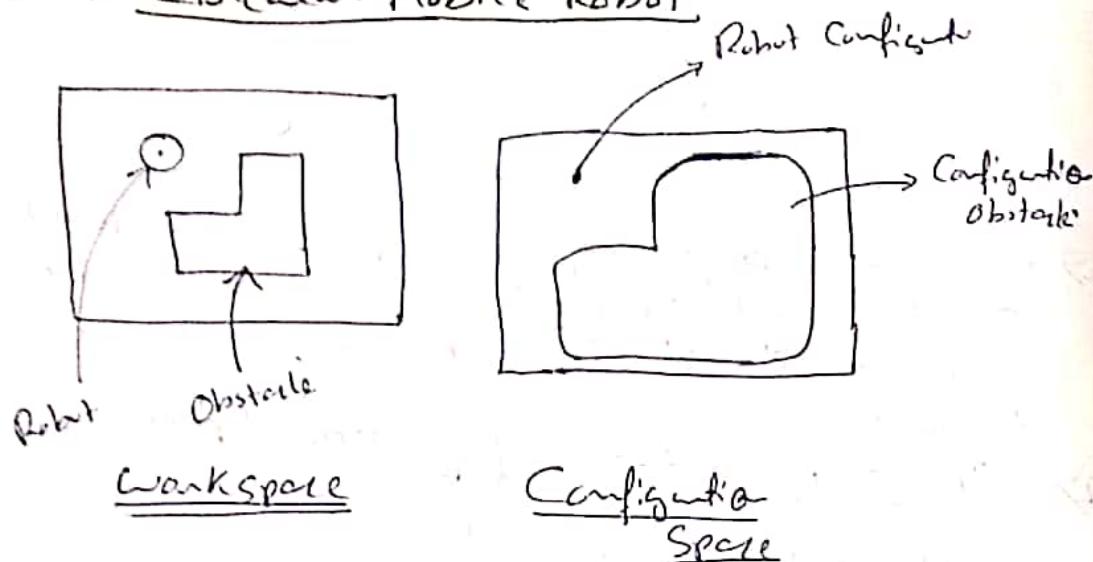 Circular Mobile Robot
Robot Configuratn
Configuration
Obstacle
Robot
Obstacle
Workspace
Configuration
Space